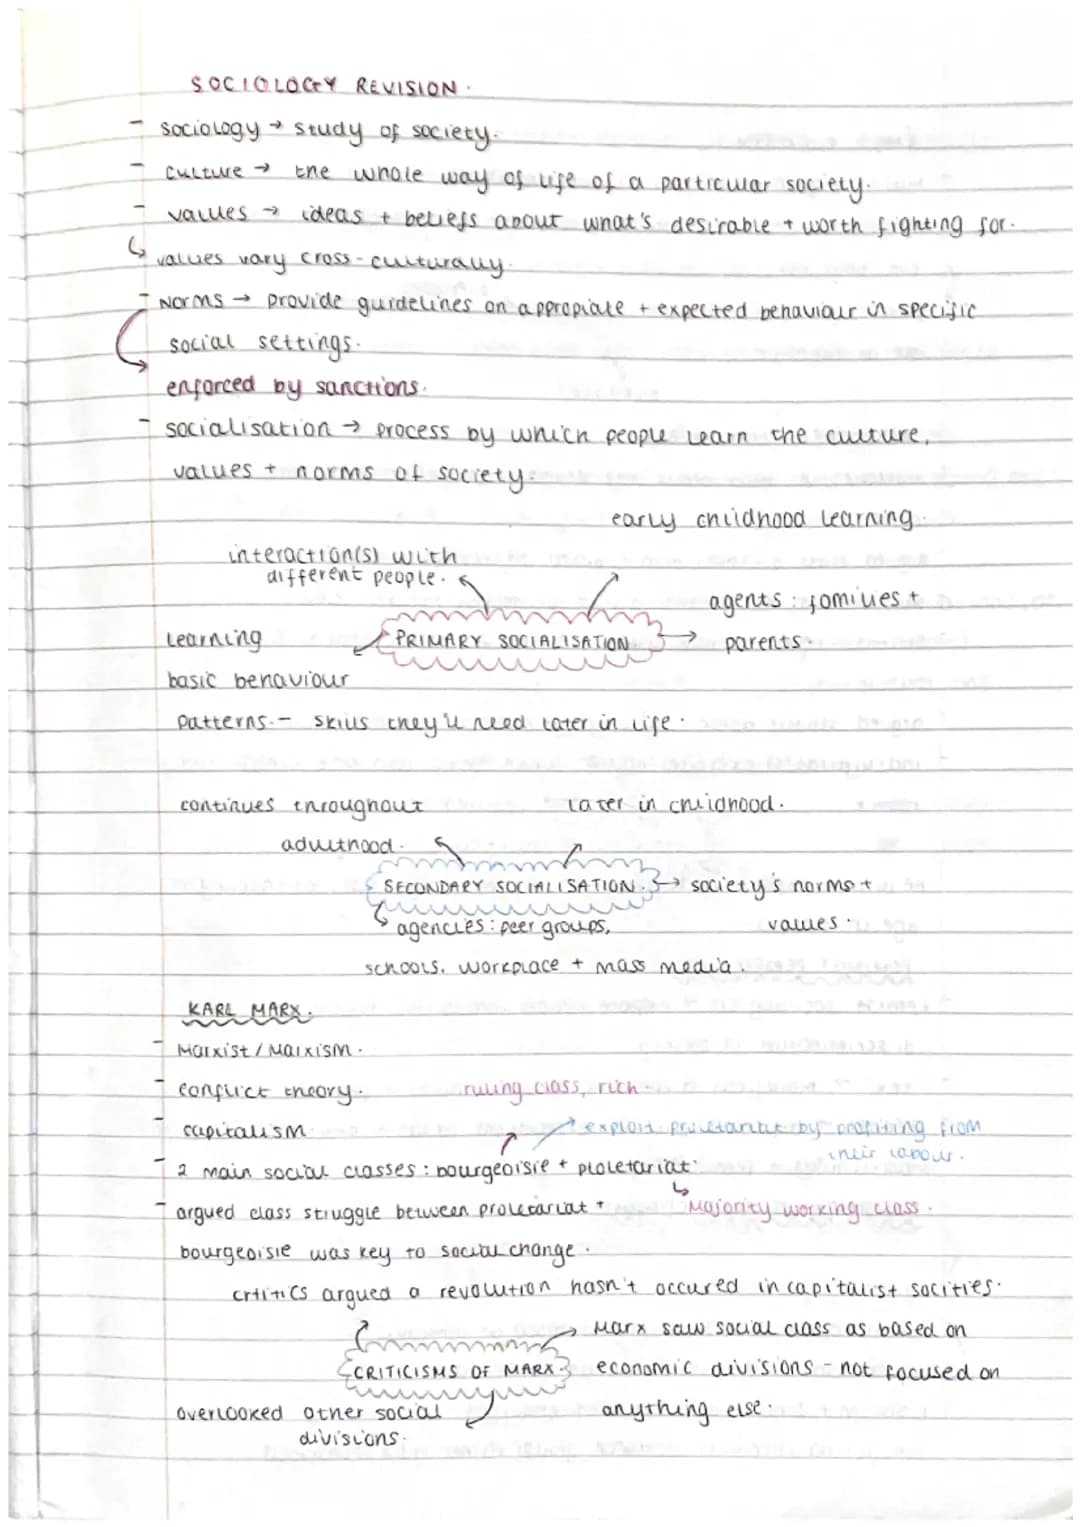 SOCIOLOGY REVISION.
- sociology → study of society.
- culture → the whole way of life of a particular society.
- values → ideas + beliefs about what's desirable + worth fighting for.
↳ values vary cross-culturally.
- Norms → provide guidelines on appropiate + expected behaviour in specific
social settings.
enforced by sanctions.
- socialisation → process by which people learn the culture,
values + norms of society.
early childhood learning.
interaction(s) with
different people.
agents: families +
learning
PRIMARY SOCIALISATION →
parents.
basic behaviour
patterns. - skills they'll need later in life.
continues throughout
later in childhood.
adulthood.
SECONDARY SOCIALISATION. → society's norms +
values.
agencies: peer groups,
schools, workplace + mass media.
KARL MARX.
- Marxist / Marxism.
- conflict theory.
ruling class, rich.
- capitalism
exploit proletariat by profiting from
their labour.
- 2 main social classes: bourgeoisie + proletariat.
- argued class struggle between proletariat +
↳ Majority working class.
bourgeoisie was key to social change.
critics argued a revolution hasn't occured in capitalist socities.
Marx saw social class as based on
CRITICISMS OF MARX.
economic divisions - not focused on
overlooked other social
anything else.
divisions.